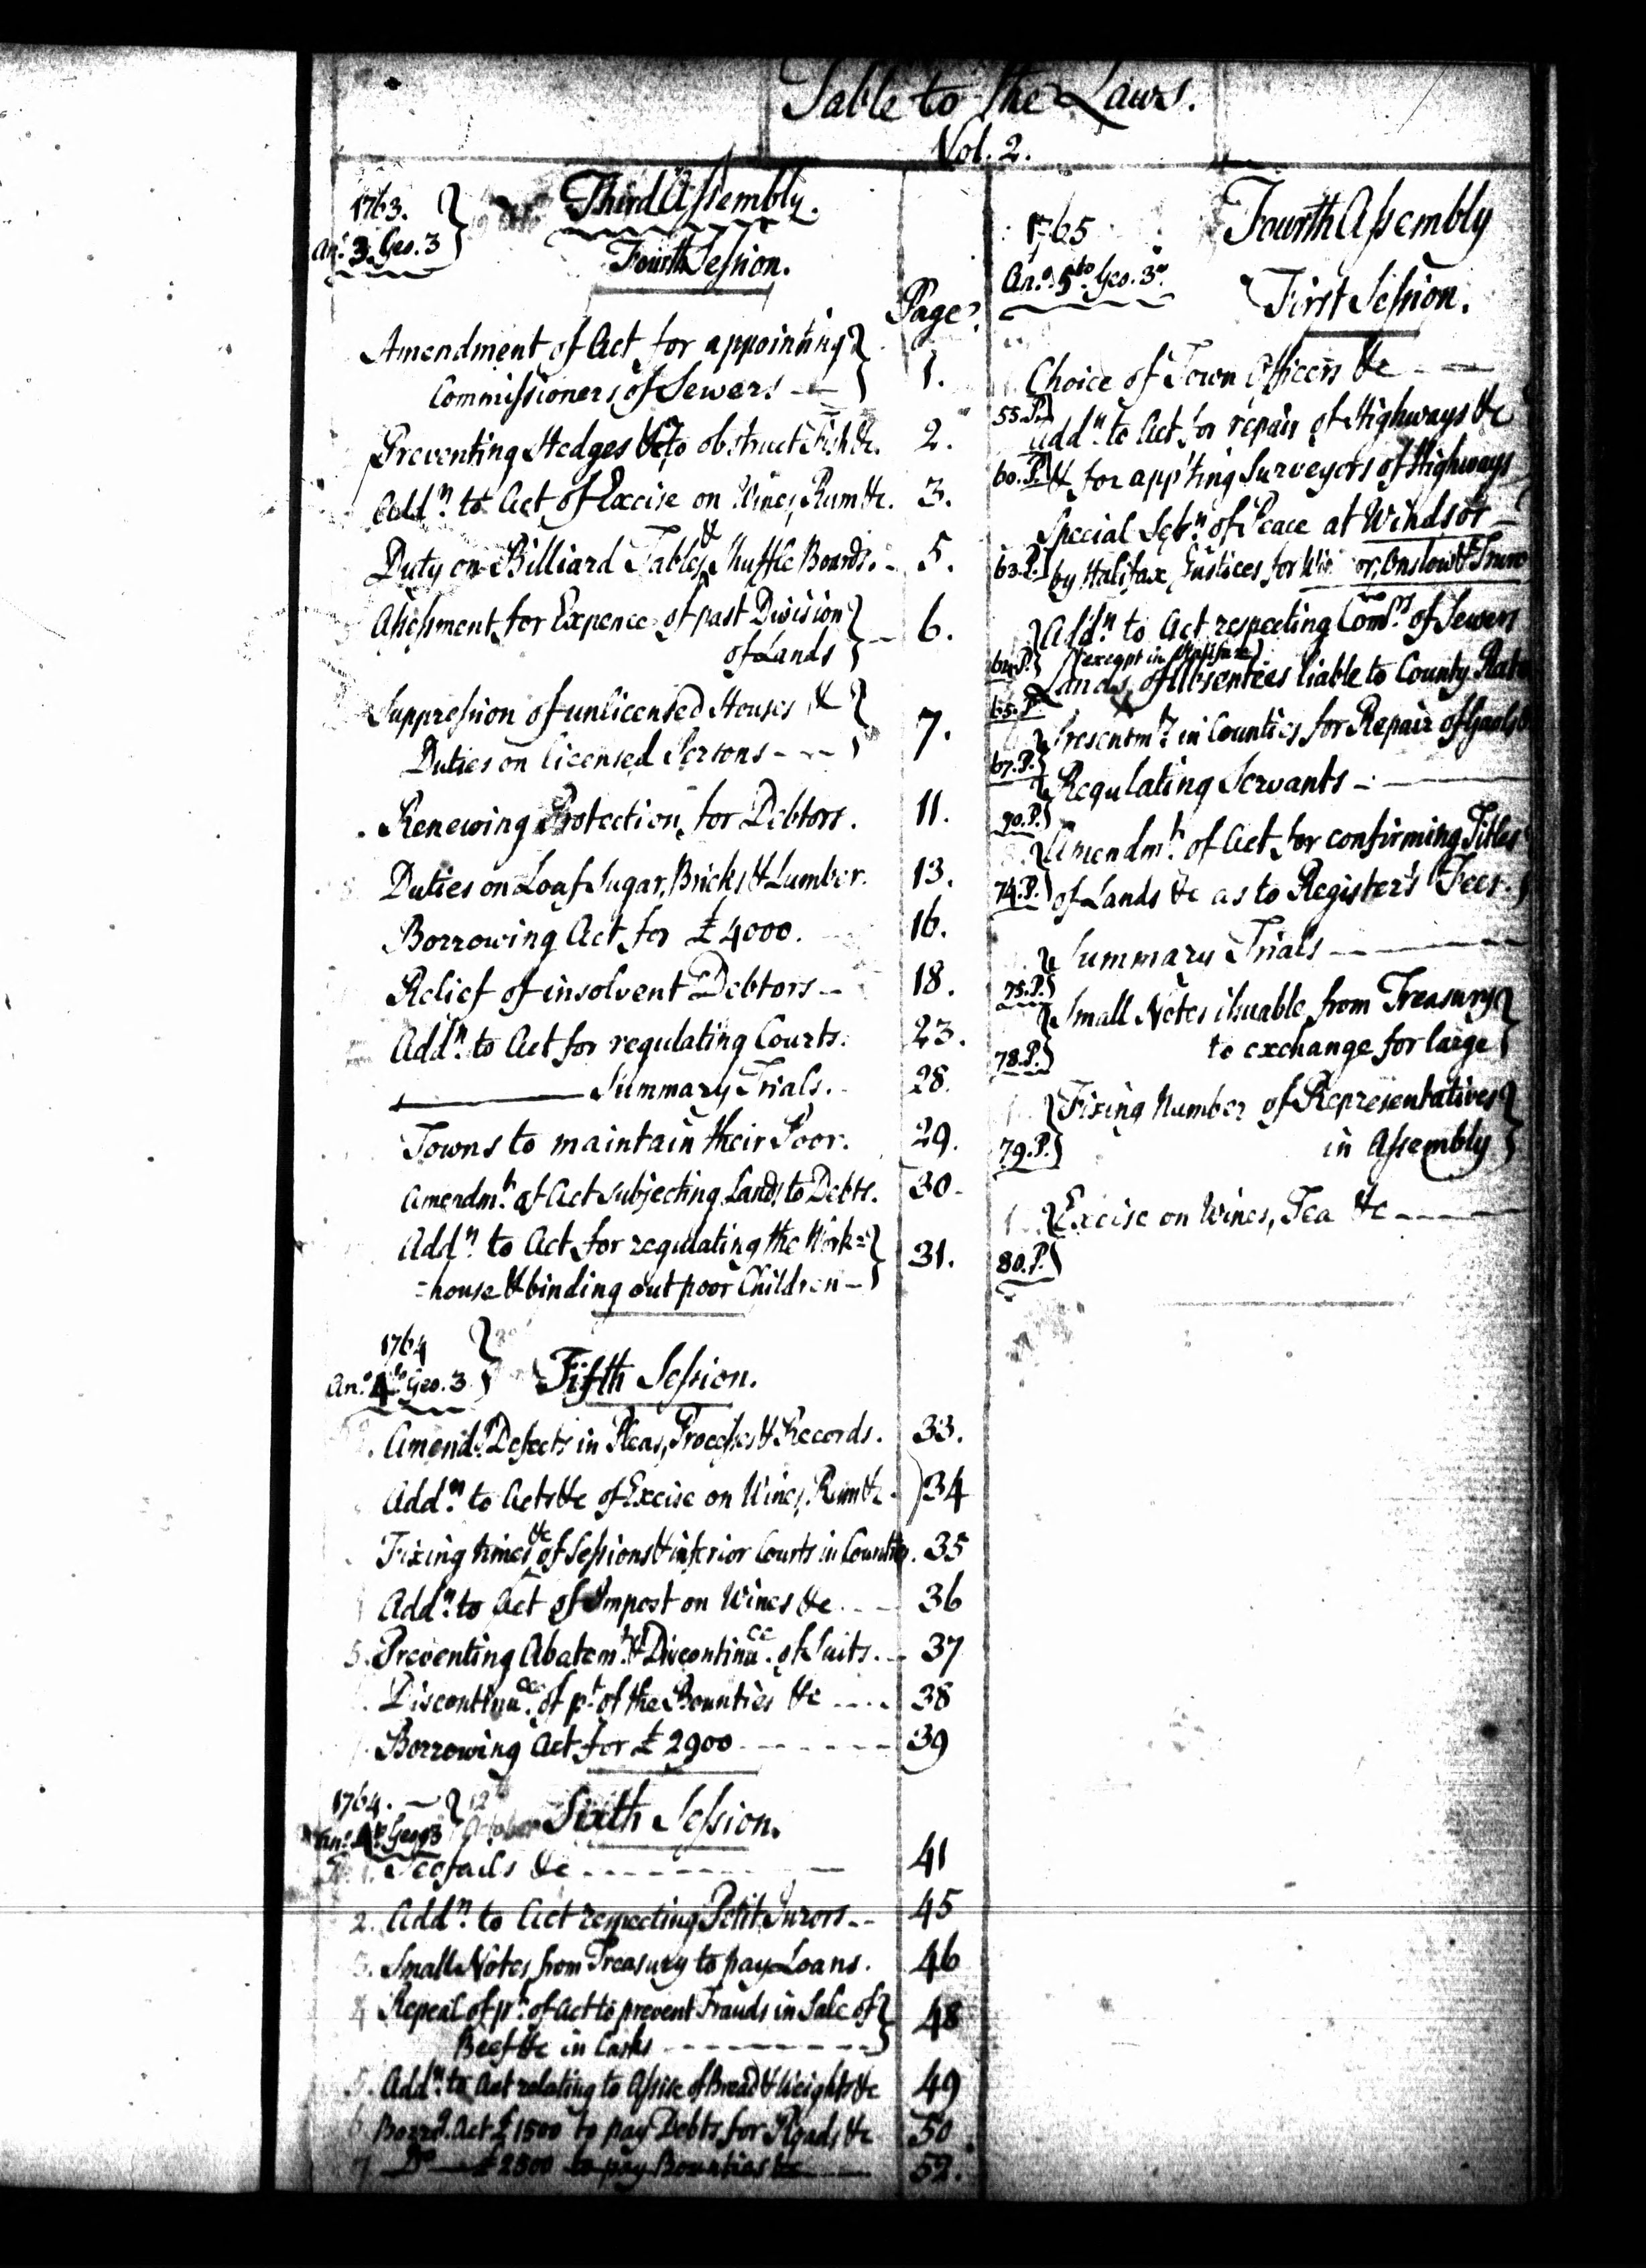 Table to the Laws.
Vol. 2.
1763.
An.o 3. Geo. 3
Third Assembly.
Fourth Session.
Page.
Amendment of Act for appointing
Commissioners of Sewers 1.
Preventing Hedges &c to obstruct Fish &c. 2.
Add.n to Act of Excise on Wines, Rum &c. 3.
Duty on Billiard Tables & Shuffle Boards. 5.
Assessment for Expence of past Division
of Lands 6.
Suppression of unlicensed Houses &
Duties on licensed Persons 7.
Renewing Protection for Debtors. 11.
Duties on Loaf Sugar, Bricks & Lumber. 13.
Borrowing Act for £4000. 16.
Relief of insolvent Debtors 18.
Add.n to Act for regulating Courts. 23.
Summary Trials. 28.
Towns to maintain their Poor. 29.
Amendm.t of Act subjecting Lands to Debts. 30.
Add.n to Act for regulating the Work=
=house & binding out poor Children 31.
1764
An.o 4.to Geo. 3
Fifth Session.
Amend.g Defects in Pleas, Processes & Records. 33.
Add.n to Acts &c of Excise on Wines, Rum &c 34
Fixing times &c of Sessions & inferior Courts in Counties. 35
Add.n to Act of Impost on Wines &c 36
5. Preventing Abatem.t & Discontinu.ce of Suits. 37
Discontinu.ce of p.t of the Bounties &c 38
Borrowing Act for £2900 39
1764. 12
An.o 4.to Geo. 3 October
Sixth Session.
1. Jeofails &c 41
2. Add.n to Act respecting Petit Jurors 45
3. Small Notes from Treasury to pay Loans. 46
4 Repeal of p.t of Act to prevent Frauds in Sale of
Beef &c in Casks 48
5. Add.n to Act relating to Assise of Bread & Weights &c 49
6 Borro.g Act £1500 to pay Debts for Roads &c 50
7 D.o £2500 to pay Bounties &c 52.
1765
An.o 5.to Geo. 3.o
Fourth Assembly
First Session.
Choice of Town Officers &c
55.P.
Add.n to Act for repair of Highways &c
60.P. & for app'ting Surveyors of Highways
Special Sess.n of Peace at Windsor
63.P. by Halifax Justices for Onslow & Truro
Add.n to Act respecting Com.rs of Sewers
64.P. (except in Halifax)
Lands of Absentees liable to County Rates
65.P.
Presentm.ts in Counties for Repair of Gaols
67.P.
Regulating Servants
70.P.
Amendm.t of Act for confirming Titles
74.P. of Lands &c as to Register's Fees.
Summary Trials
75.P.
Small Notes issuable from Treasury
78.P. to exchange for large
Fixing Number of Representatives
79.P. in Assembly
Excise on Wines, Tea &c
80.P.